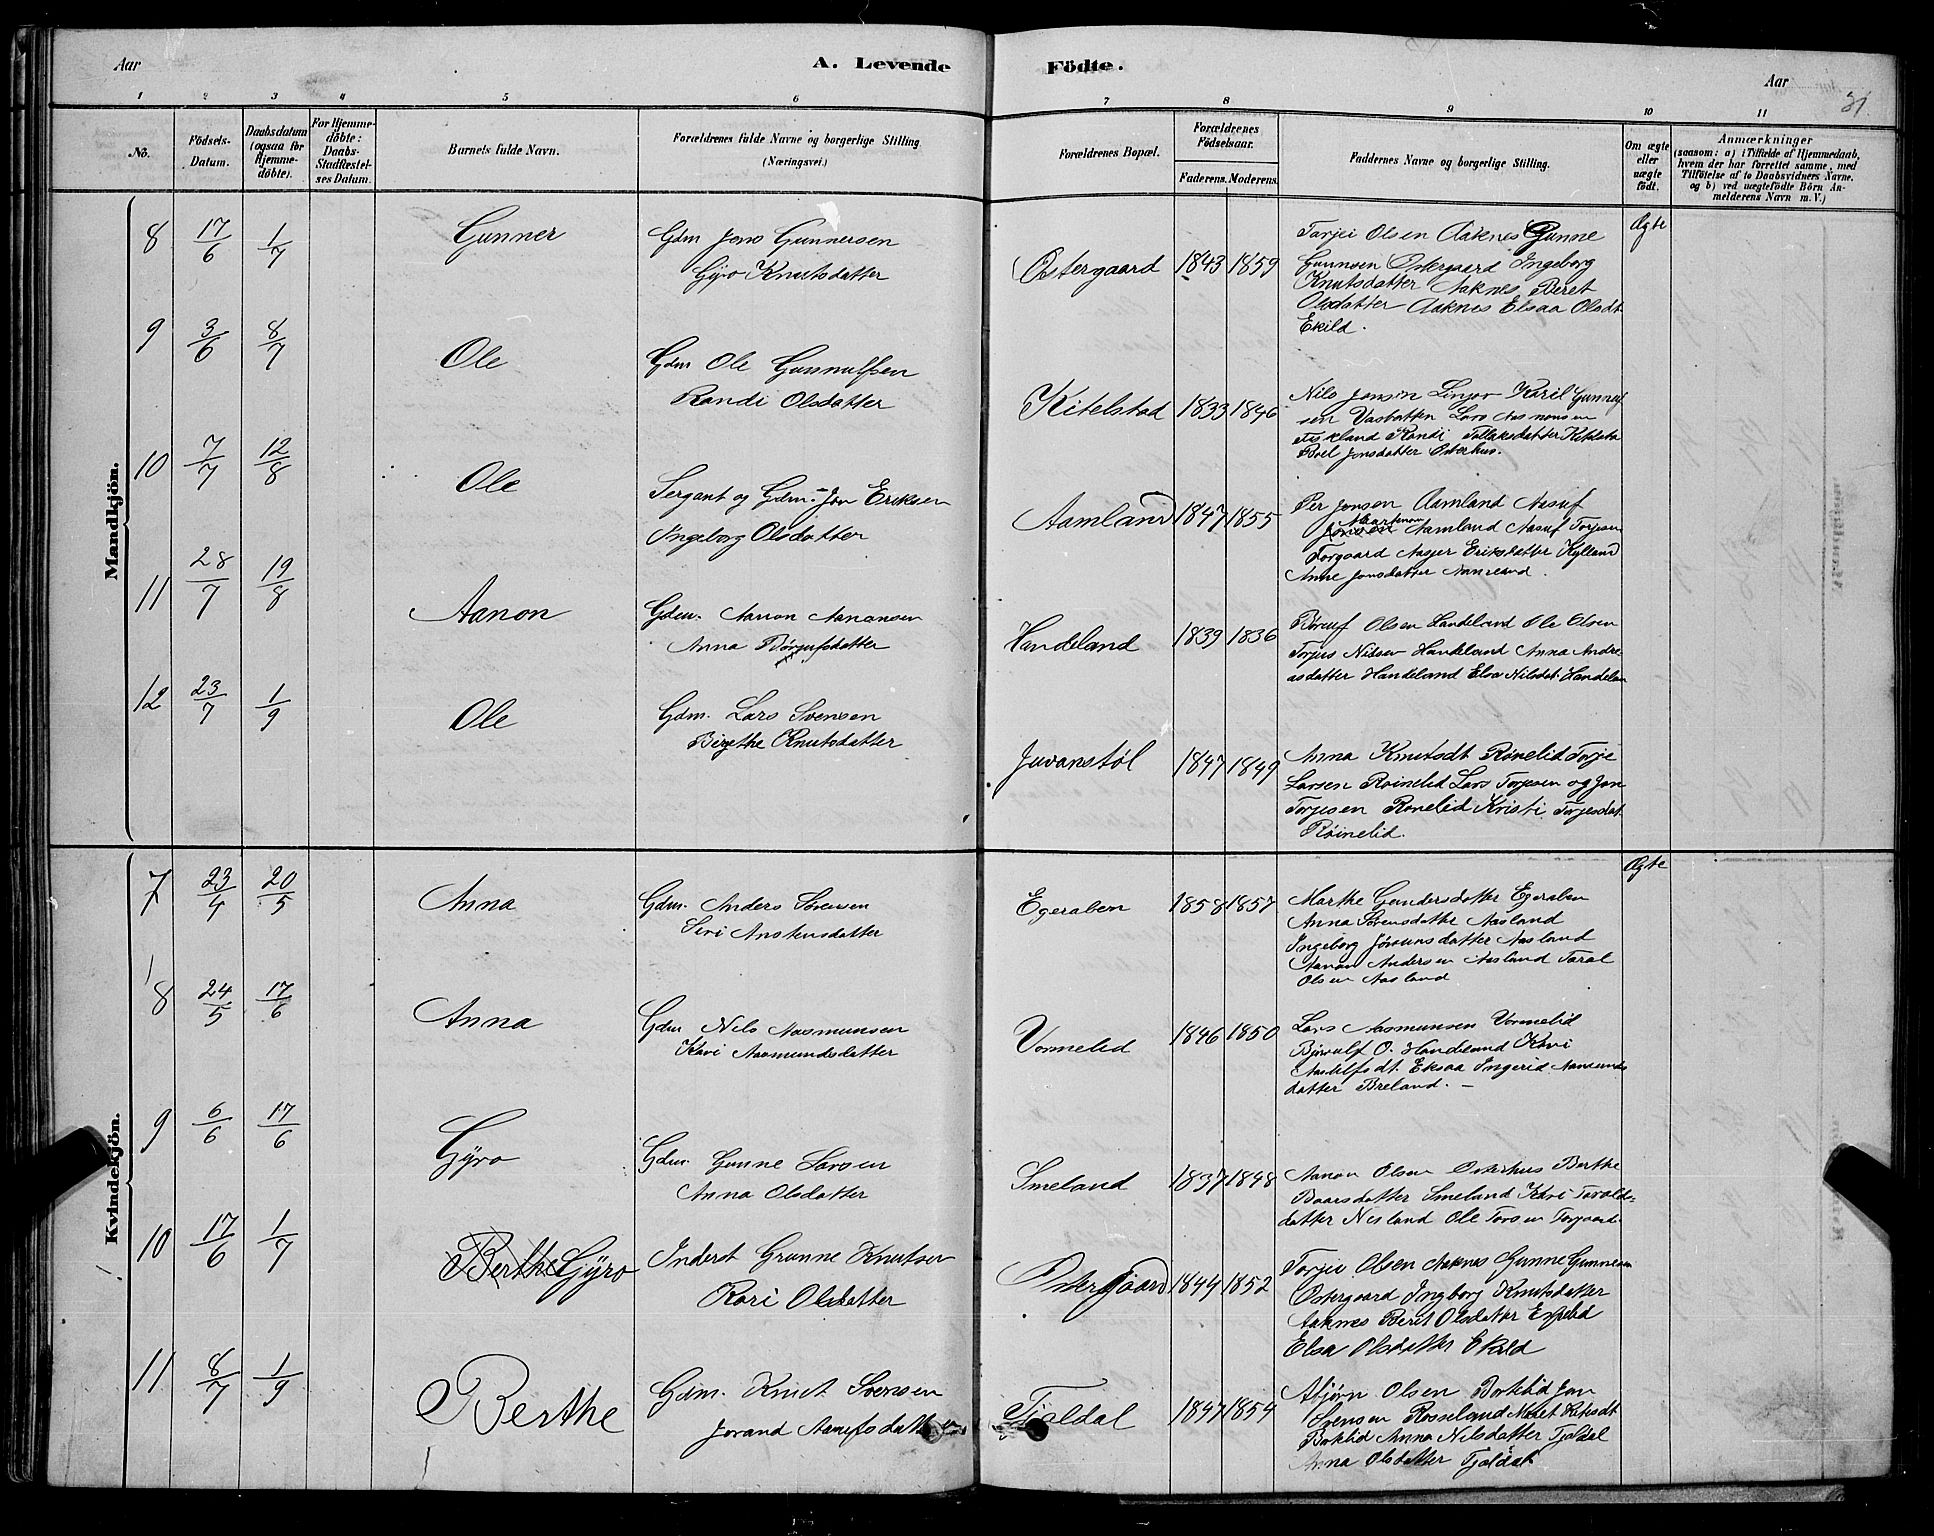 Aar
A. Levende
Födte.
Aar
31.
1
2
3
4
5
6
7
8
9
10
11
No.
Födsels-
Datum.
Daabsdatum
(ogsaa for
Hjemme-
döbte).
For Hjemme-
döbte:
Daabs-
Stadfæstel-
ses Datum.
Barnets fulde Navn.
Forældrenes fulde Navne og borgerlige Stilling.
(Næringsvei.)
Forældrenes Bopæl.
Forældrenes
Födselsaar.
Faderens.
Moderens.
Faddernes Navne og borgerlige Stilling.
Om ægte
eller
uægte
födt.
Anmærkninger
(saasom: a) i Tilfælde af Hjemmedaab,
hvem der har forrettet samme, med
Tilföielse af to Daabsvidners Navne.
og b) ved uægtefödte Börn An-
melderens Navn m. V.)
Mandkjön.
8 17/6 1/7 Gunner
Gdm Jens Gunnersen
Gyro Knutsdatter
Ostergaard 1843 1859
Torjei Olsen Aaknes Gunne
Gunnsen Ostergaard Ingeborg
Knutsdatter Aaknes Beret
Olsdatter Aaknes Elsaa Olsdt
Ekild.
Ægte
9 3/6 8/7 Ole
Gdm Ole Gunnulfsen
Randi Olsdatter
Kitelstad 1833 1846
Nils Jonsen Kavil
Lars
Randi Tollaksdatter
Boel Jonsdatter Osterhus.
10 7/7 12/8 Ole
Sergant og Gdm. Jon Eriksen
Ingeborg Olsdatter
Aamland 1847 1855
Per Jonsen Aamland Aasuf
Aamland Aasuf Torjesen
Torgaard Eriksdatter Kylland
Anne Jonsdatter
11 28/7 19/8 Aanon
Gdm. Aanon Aanonsen
Anna Börjufsdatter
Handeland 1839 1836
Olsen Handeland Ole Olsen
Torjus Nilsen Handeland Anna Andre-
asdatter Handeland Elsa Nilsdat. Handelan
12 23/7 1/9 Ole
Gdm. Lars Svensen
Birgthe Knutsdatter
Juvanstöl 1847 1849
Anna Knutsdt Röinelid Torje
Larsen Röinelid Lars Torjesen og Jon
Torjesen Rönelid Kristi Torjesdat
Röinelid.
Kvindekjön.
7 23/4 20/5 Anna
Gdm. Anders Sörensen
Siri Anstensdatter
Egeraben 1858 1857
Marthe Gundersdatter Egeraben
Anna Sörensdatter Aasland
Ingeborg Jörunsdatter Aasland
Aanon Andersen Aasland Taral
Olsen Aasland
Ægte
8 24/5 17/6 Anna
Gdm Nils Aasmunsen
Kari Aasmundsdatter
Vormelid 1846 1850
Lars Aasmunsen Vormelid
Bjorulf O. Handeland Kari
Eksaa Ingerid
datter Breland. –
9 6/6 17/6 Gyro
Gdm. Gunne Larsen
Anna Olsdatter
Smeland 1837 1848
Aanon Olsen Osterhus Berthe
Baarsdatter Smeland Kari Tarald-
datter Nesland Ole Torsen Torgaard
10 17/6 1/7 Berthe Gyro
Inderst Grunne Knutsen
Kari Olsdatter
Ostergaard 1844 1852
Torjei Olsen Aaknes Gunne Gunnesen
Ostergaard Ingborg Knutsdatter
Aaknes Beret Olsdatter
Elsa Olsdatter Ekild
11 8/7 1/9 Berthe
Gdm. Knut Svensen
Jorand
Tjoldal 1847 1854
Asbjörn Olsen Jon
Svensen Rosseland
Anna Nilsdatter Tjoldal
Anna Olsdatter Tjoldal